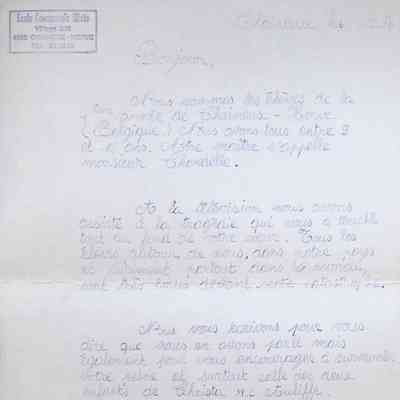 Ecole Communale Mixte
Village
Chaineux le
Bonjour,
Nous sommes les élèves de la
année de Chaineux - Herve
(Belgique). Nous avons tous entre 9
et ans. Notre maître s'appelle
monsieur
A la télévision nous avons
assisté à la tragédie qui nous a touché
tout au fond de notre cœur. Tous les
élèves autour de nous, dans notre pays
et sûrement partout dans le monde,
sont très émus devant cette catastrophe.
Nous vous écrivons pour vous
dire que nous en avons parlé mais
également pour vous encourager à surmonter
votre peine et surtout celle des
enfants de Christa Mc Auliffe.